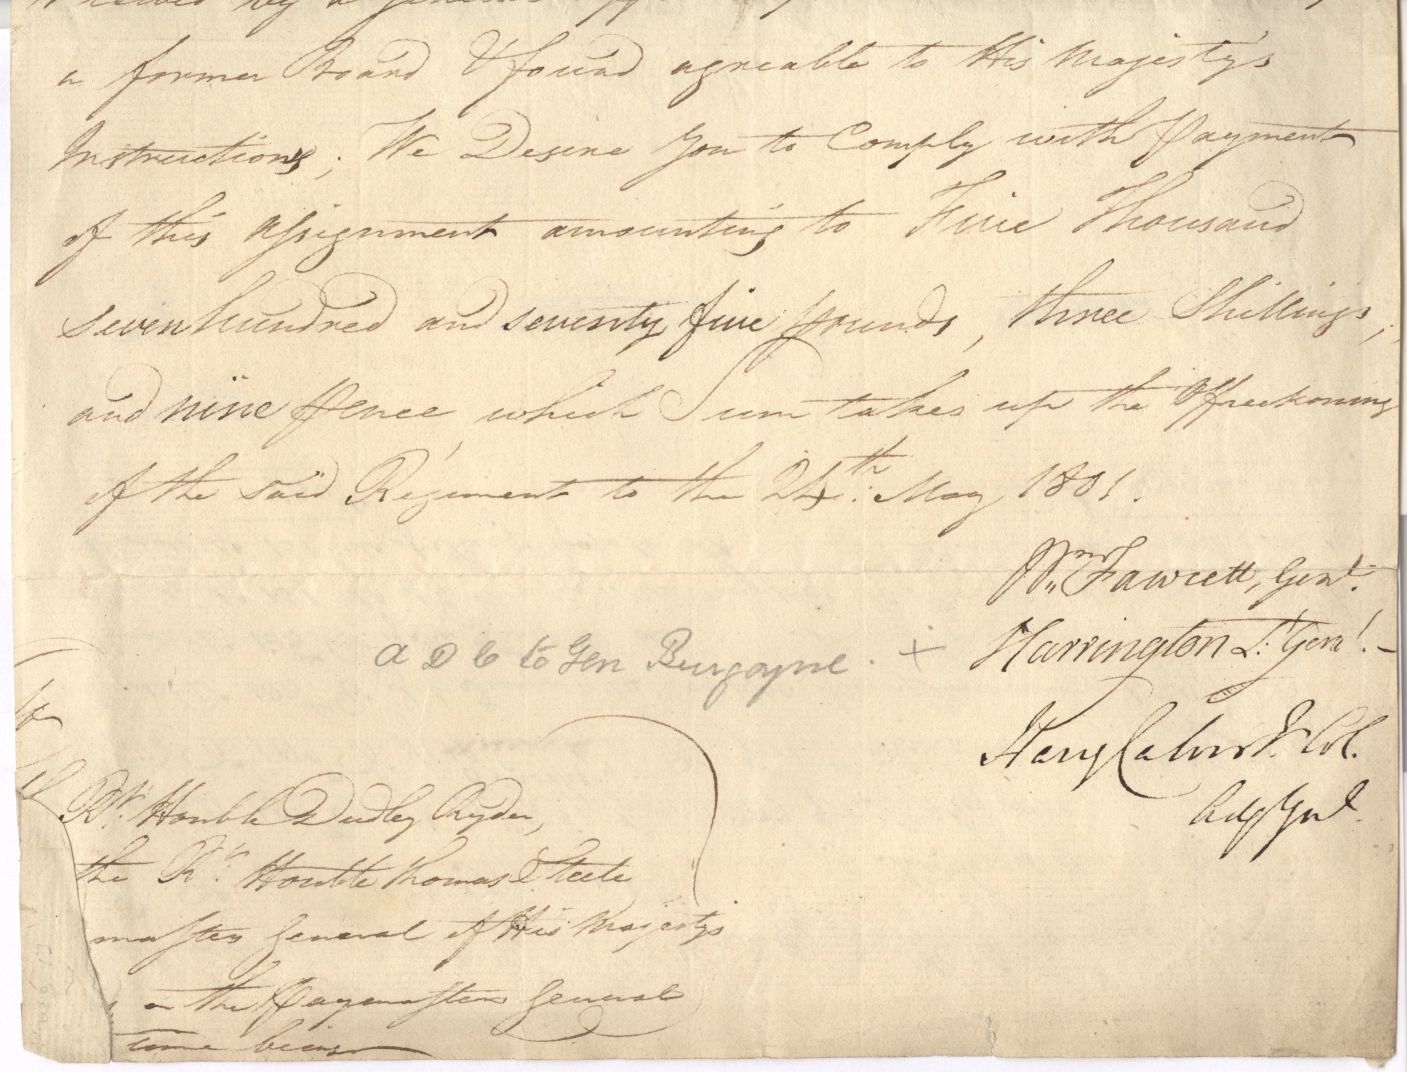 by a general
a former Board & found agreable to His Majesty's
Instructions; We Desire You to Comply with Payment
of this Assignment amounting to Five Thousand
seven hundred and seventy five Pounds, three Shillings,
and nine Pence, which Sum takes up the Offreckonings
of the said Regiment to the 24th. May 1801.
Wm. Fawcett, Genl.
Harrington Lt. Genl. -
a D C to Gen Burgoyne. +
Harry Calvert Col.
Adjt Genl
Rt. Honble Dudley Ryder,
the Rt. Honble Thomas Steele
master General of His Majesty's
or the Paymasters General
time being